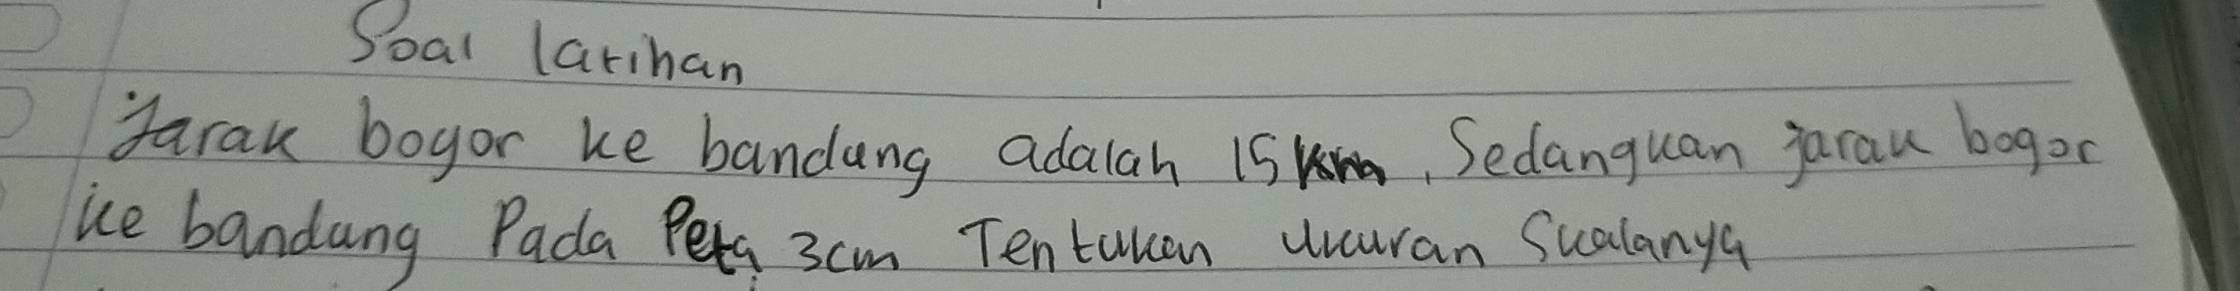 Soal latihan
Jarak bogor ke bandung adalah 15 km, Sedangkan jarak bogor
ke bandung Pada Peta 3cm Tentukan ukuran Skalanya